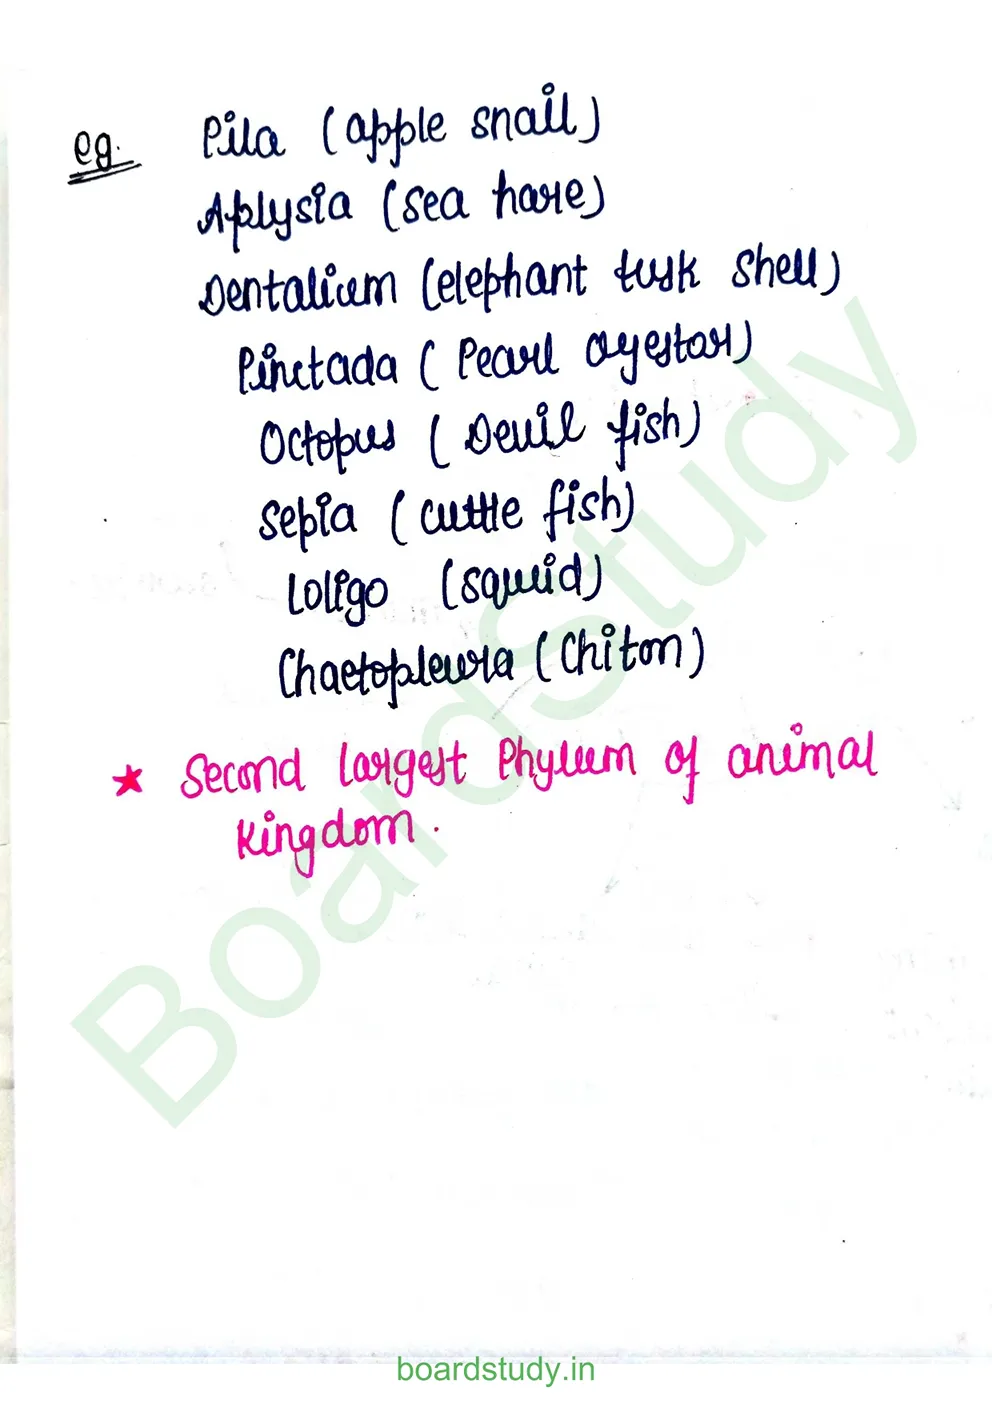 eg. Pila (apple snail)
Aplysia (sea hare)
Dentalium (elephant tusk shell)
Pinctada (Pearl oyestar)
Octopus (Devil fish)
Sepia (cuttle fish)
Loligo (squid)
Chaetopleura (Chiton)
★ Second largest Phylum of animal
kingdom.
BoardStudy
boardstudy.in